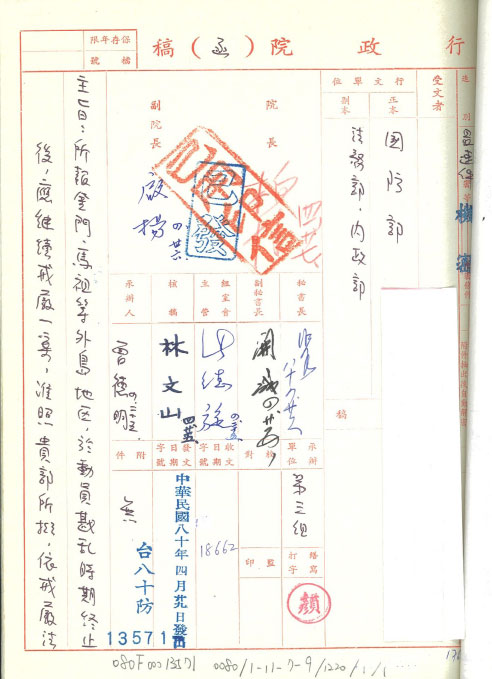 行政院（函）稿
保存年限
檔號
受文者
速別
最速件
機密
行文單位
正本
國防部
副本
法務部、內政部
稿
院長
副院長
已發
秘書長
副秘書長
組室會主管
核稿
林文山
承辦人
曾德明
承辦單位
第三組
校對
收文日期字號
18662
發文日期字號
中華民國八十年四月廿九日發出
台八十防
13571
附件
無
繕寫打字
顏
監印
主旨：所報金門、馬祖等外島地區，於動員戡亂時期終止
後，應繼續戒嚴一案，准照貴部所擬，依戒嚴法
080F0013571 0080/1-11-7-9/1220/1/1